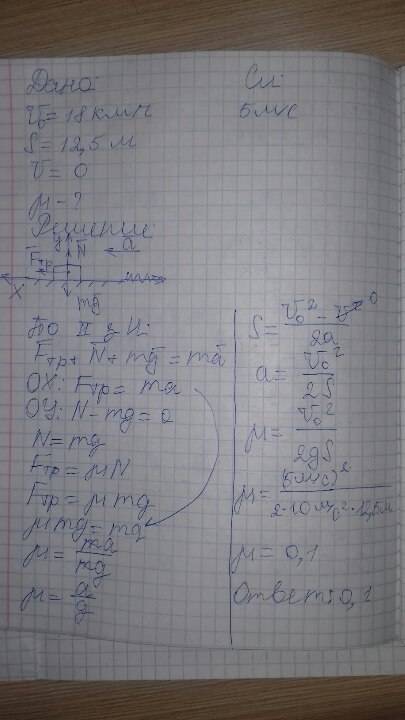 Дано:
V₀ = 18 км/ч
S = 12,5 м
V = 0
μ - ?
Си:
5 м/с
Решение
y N a
Fтр
X
mg
По II з Н:
Fтр + N + mg = ma
OX: Fтр = ma
ОУ: N - mg = 0
N = mg
Fтр = μN
Fтр = μmg
μmg = ma
μ = ma/mg
μ = a/g
S = (V₀² - V²)/2a 0
a = V₀²/2S
μ = V₀²/2gS
μ = (5 м/с)²/(2·10 м/с²·12,5 м)
μ = 0,1
Ответ: 0,1